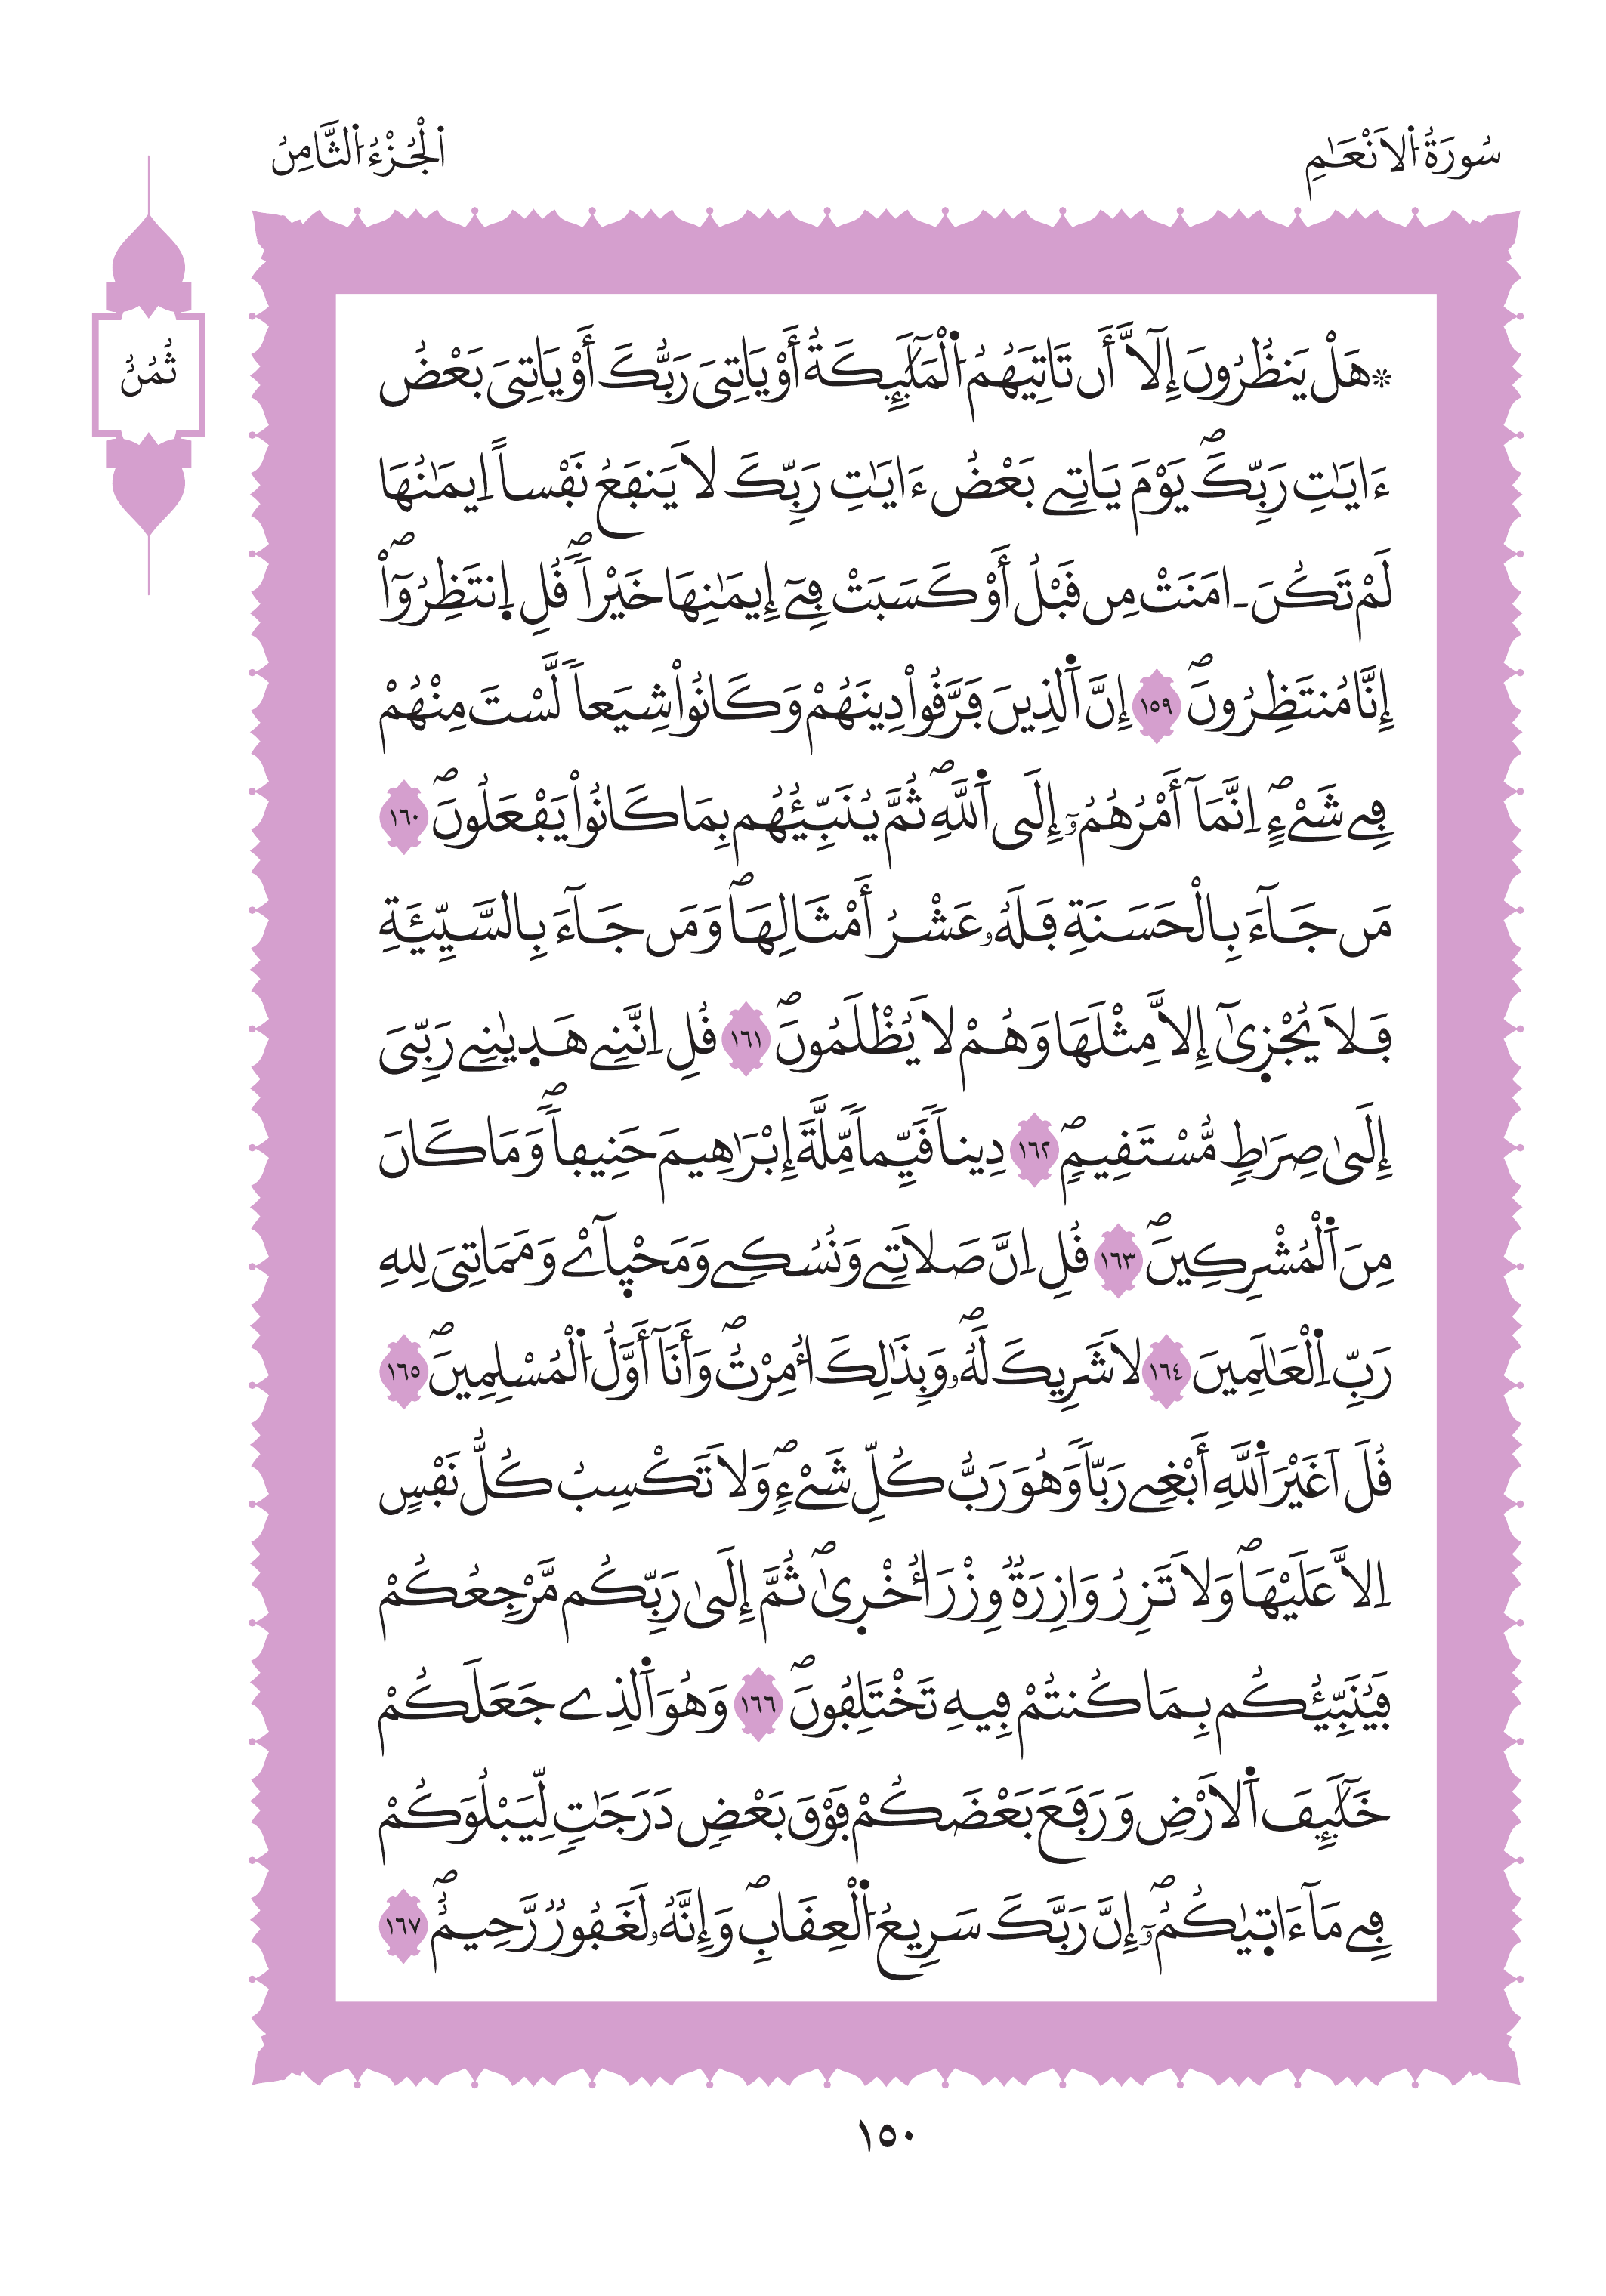 سُورَةُ اُ۬لَانْعَٰمِ
اُ۬لْجُزْءُ اُ۬لثَّامِنُ
ثُمُنُ
* هَلْ يَنظُرُونَ إِلَّآ أَن تَاتِيَهُمُ اُ۬لْمَلَٰٓئِكَةُ أَوْ يَاتِىَ رَبُّكَ أَوْ يَاتِىَ بَعْضُ
ءَايَٰتِ رَبِّكَۖ يَوْمَ يَاتِے بَعْضُ ءَايَٰتِ رَبِّكَ لَا يَنفَعُ نَفْساً اِيمَٰنُهَا
لَمْ تَكُنَ ـ امَنَتْ مِن قَبْلُ أَوْ كَسَبَتْ فِےٓ إِيمَٰنِهَا خَيْراٗۖ قُلِ اِ۪نتَظِرُوٓاْۖ
إِنَّا مُنتَظِرُونَۖ ١٥٩ إِنَّ اَ۬لذِينَ فَرَّقُواْ دِينَهُمْ وَكَانُواْ شِيَعاٗ لَّسْتَ مِنْهُمْ
فِے شَےْءٍۖ اِنَّمَآ أَمْرُهُمُۥٓ إِلَى اَ۬للَّهِۖ ثُمَّ يُنَبِّئُهُم بِمَا كَانُواْ يَفْعَلُونَۖ ١٦٠
مَن جَآءَ بِالْحَسَنَةِ فَلَهُۥ عَشْرُ أَمْثَالِهَاۖ وَمَن جَآءَ بِالسَّيِّئَةِ
فَلَا يُجْز۪ىٰٓ إِلَّا مِثْلَهَا وَهُمْ لَا يُظْلَمُونَۖ ١٦١ قُلِ اِنَّنِے هَد۪يٰنِے رَبِّىَ
إِلَىٰ صِرَٰطٖ مُّسْتَقِيمٖۖ ١٦٢ دِيناٗ قَيِّماٗ مِّلَّةَ إِبْرَٰهِيمَ حَنِيفاٗۖ وَمَا كَانَ
مِنَ اَ۬لْمُشْرِكِينَۖ ١٦٣ قُلِ اِنَّ صَلَاتِے وَنُسُكِے وَمَحْي۪آےْ وَمَمَاتِىَ لِلهِ
رَبِّ اِ۬لْعَٰلَمِينَ ١٦٤ لَا شَرِيكَ لَهُۥۖ وَبِذَٰلِكَ أُمِرْتُۖ وَأَنَآ أَوَّلُ اُ۬لْمُسْلِمِينَۖ ١٦٥
قُلَ اَغَيْرَ اَ۬للَّهِ أَبْغِے رَبّاٗ وَهُوَ رَبُّ كُلِّ شَےْءٖۖ وَلَا تَكْسِبُ كُلُّ نَفْسٍ
اِلَّا عَلَيْهَاۖ وَلَا تَزِرُ وَازِرَةٞ وِزْرَ أُخْر۪ىٰۖ ثُمَّ إِلَىٰ رَبِّكُم مَّرْجِعُكُمْ
فَيُنَبِّئُكُم بِمَا كُنتُمْ فِيهِ تَخْتَلِفُونَۖ ١٦٦ وَهُوَ اَ۬لذِے جَعَلَكُمْ
خَلَٰٓئِفَ اَ۬لَارْضِ وَرَفَعَ بَعْضَكُمْ فَوْقَ بَعْضٖ دَرَجَٰتٖ لِّيَبْلُوَكُمْ
فِے مَآ ءَات۪يٰكُمُۥٓۖ إِنَّ رَبَّكَ سَرِيعُ اُ۬لْعِقَابِۖ وَإِنَّهُۥ لَغَفُورٞ رَّحِيمٞۖ ١٦٧
١٥٠